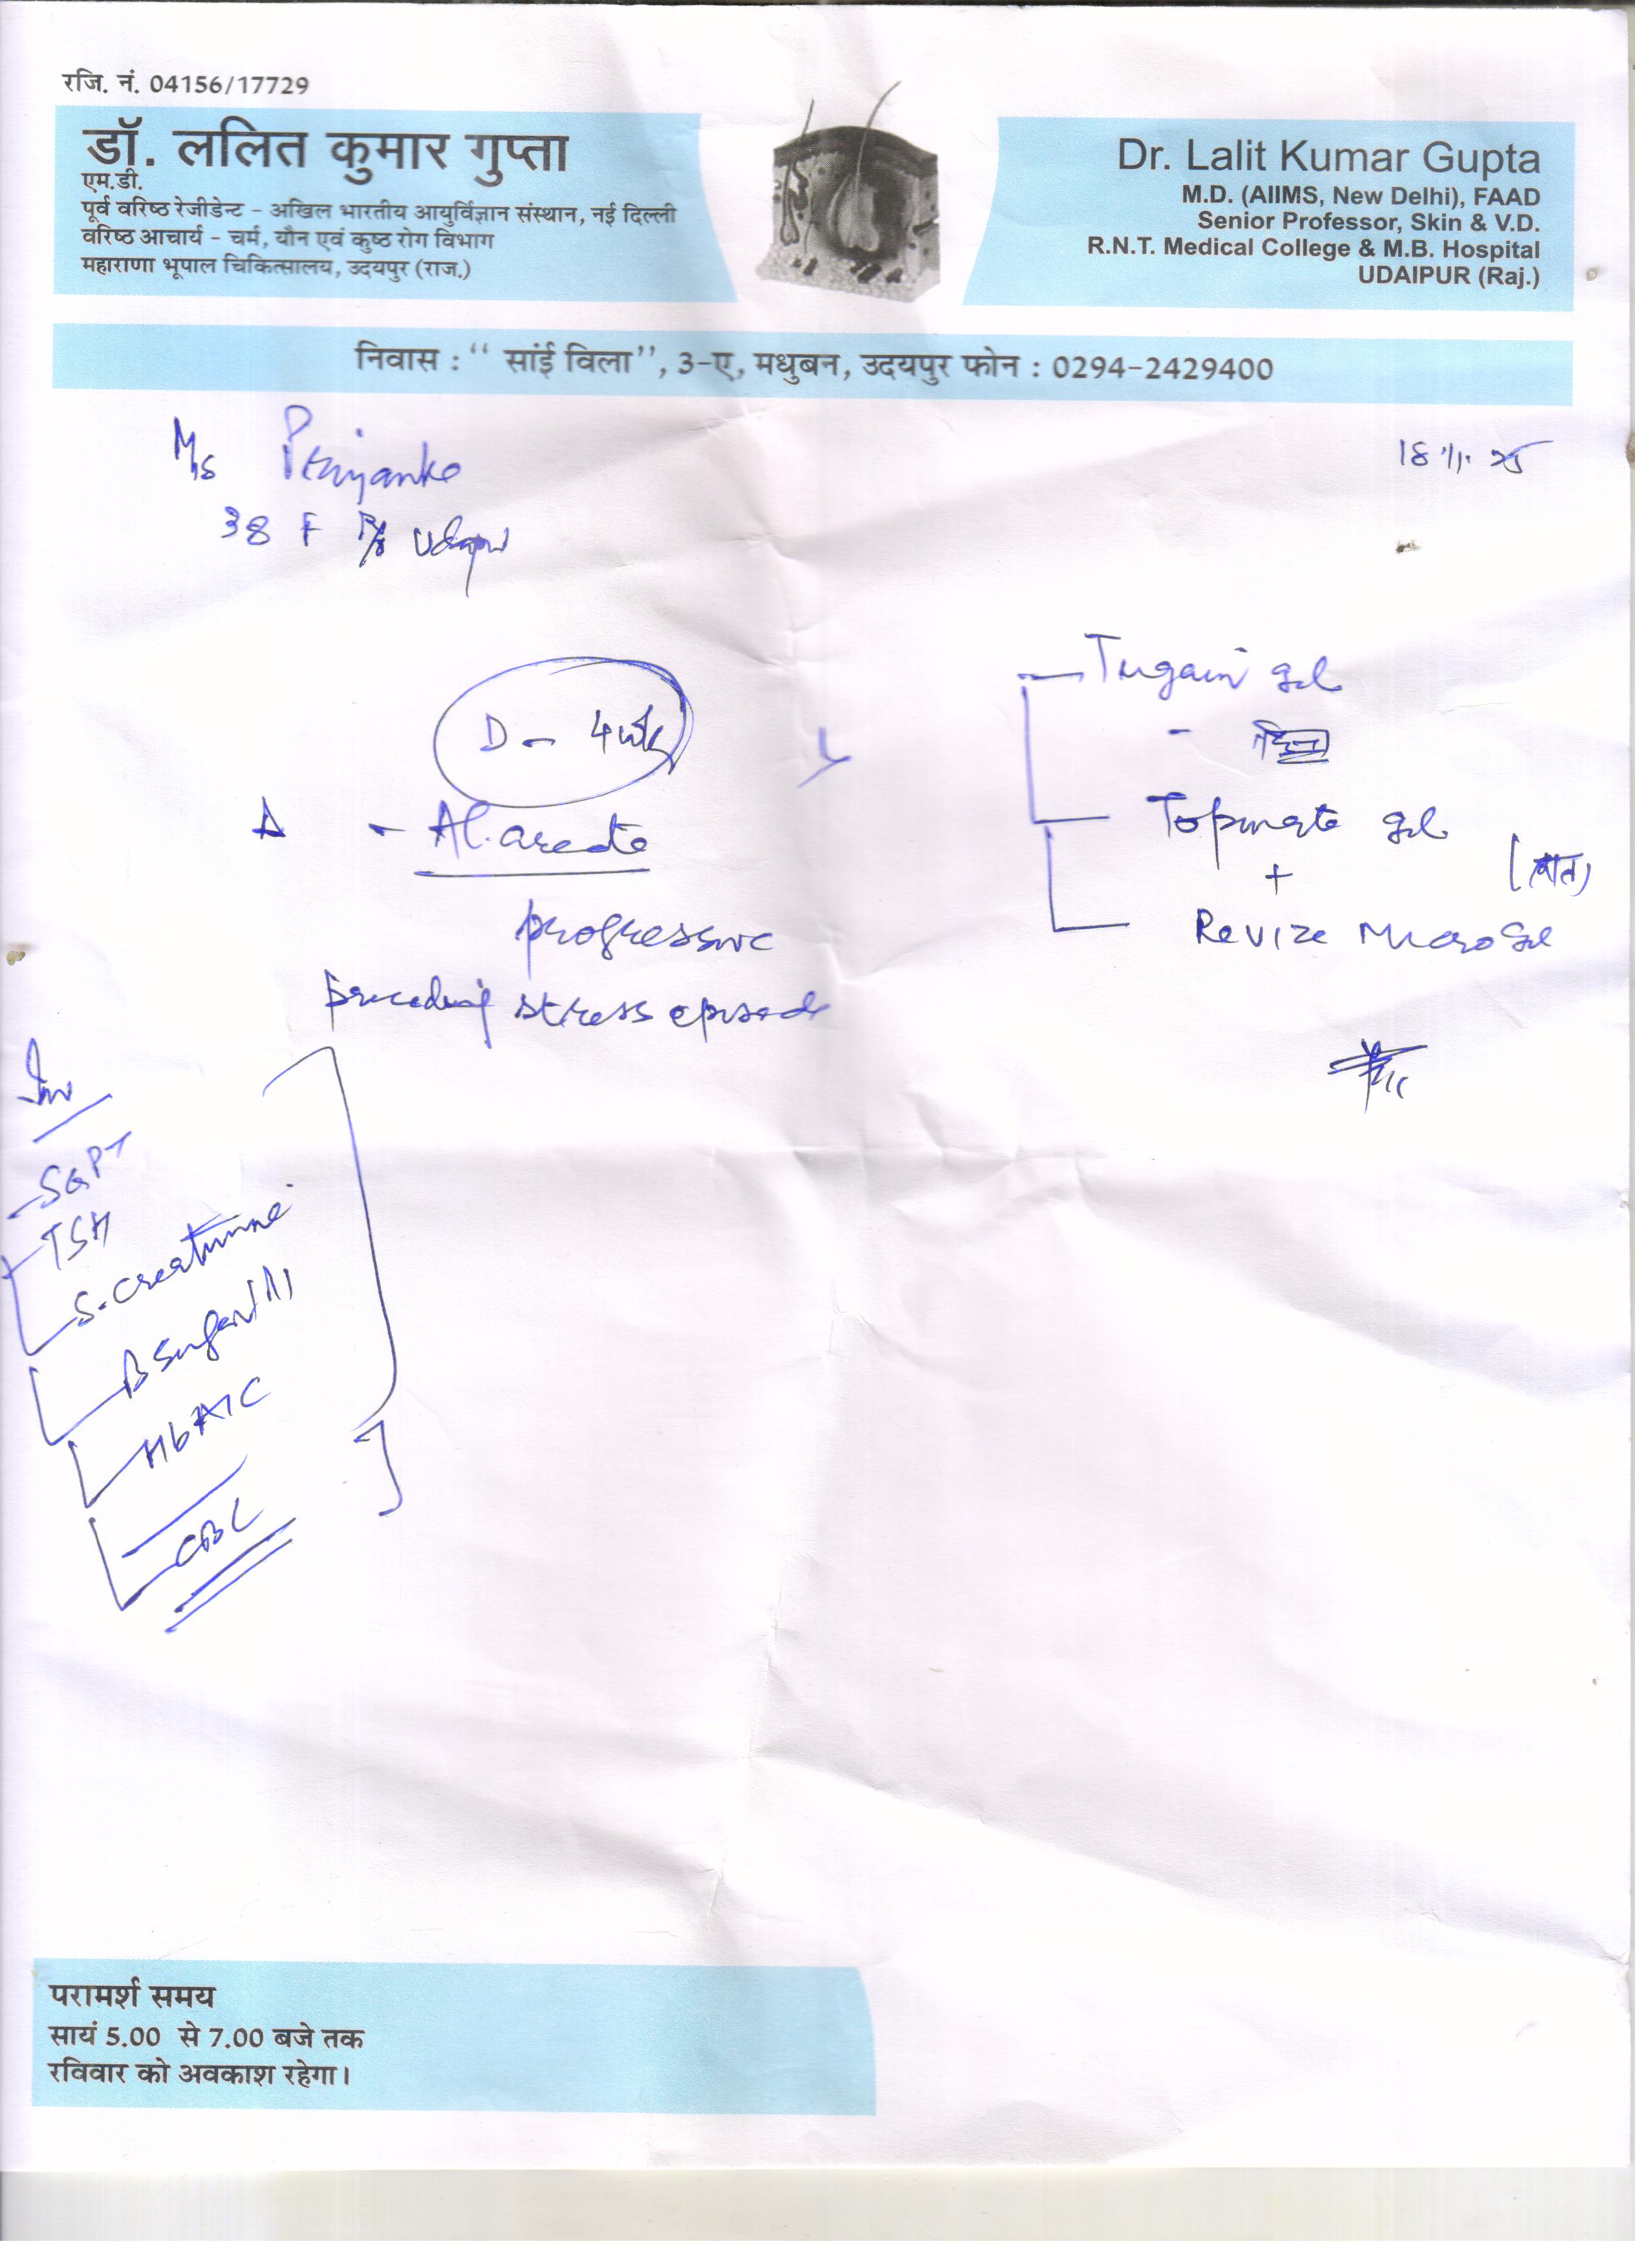 रजि. नं. 04156/17729
डॉ. ललित कुमार गुप्ता
एम.डी.
पूर्व वरिष्ठ रेजीडेन्ट - अखिल भारतीय आयुर्विज्ञान संस्थान, नई दिल्ली
वरिष्ठ आचार्य - चर्म, यौन एवं कुष्ठ रोग विभाग
महाराणा भूपाल चिकित्सालय, उदयपुर (राज.)
Dr. Lalit Kumar Gupta
M.D. (AIIMS, New Delhi), FAAD
Senior Professor, Skin & V.D.
R.N.T. Medical College & M.B. Hospital
UDAIPUR (Raj.)
निवास : “ सांई विला”, 3-ए, मधुबन, उदयपुर फोन : 0294-2429400
M/s Priyanka
38 F R/o Udaipur
D - 4 wks
Δ - Al. areata
progressive
preceding stress episode
Tugain gel
Topinate gel
+
(रात)
Revize Micro Gel
Inv
SGPT
TSH
S. Creatinine
B Sugar
HbA1C
CBC
परामर्श समय
सायं 5.00 से 7.00 बजे तक
रविवार को अवकाश रहेगा।